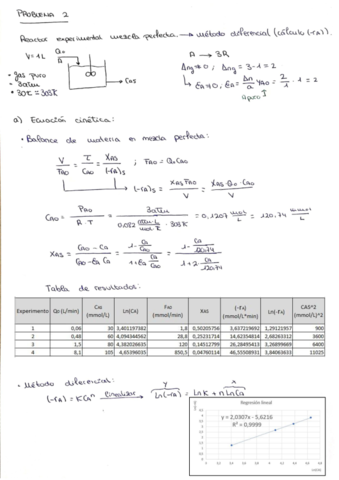 PROBLEMA 2
Reactor experimental mezcla perfecta → método diferencial (cálculo (-rA)).
V = 1L
Qo
A → 3R
• gas puro
• 3atm
• 30ºC = 303K
CAS
Δng ≠ 0; Δng = 3-1 = 2
↳ εA ≠ 0; εA = Δn/a · yAo = 2/1 · 1 = 2
a puro
a) Ecuación cinética:
• Balance de materia en mezcla perfecta:
V/FAO = τ/CAO = XAS/(-rA)s ; FAO = Qo·CAO
↳ (-rA)s = XAS·FAO/V = XAS·Qo·CAO/V
CAO = PAO/R·T = 3atm/0,082 atm·L/mol·K · 303K = 0,1207 mol/L = 120,74 mmol/L
XAS = CAO - CA/CAO - εA·CA = 1 - CA/CAO/1 + εA CA/CAO = 1 - CA/120,74/1 + 2 CA/120,74
Tabla de resultados:
Experimento Qo (L/min) CAS (mmol/L) Ln(Ca) FAO (mmol/L) XAS (-rA) (mmol/L*min) Ln(-rA) CAS^2 (mmol/L)^2
1 0,06 30 3,401197382 1,8 0,50205756 3,637219692 1,29121957 900
2 0,48 60 4,094344562 28,8 0,25231714 14,62354814 2,68263312 3600
3 1,5 80 4,382026635 120 0,14512799 26,28495413 3,26899669 6400
4 8,1 105 4,65396035 850,5 0,04760114 46,55508931 3,84063633 11025
• Método diferencial:
(-rA) = KCAⁿ linealizar → Ln(-rA) = LnK + nLnCA
y
x
Regresión lineal
y = 2,0307x - 5,6216
R² = 0,9999